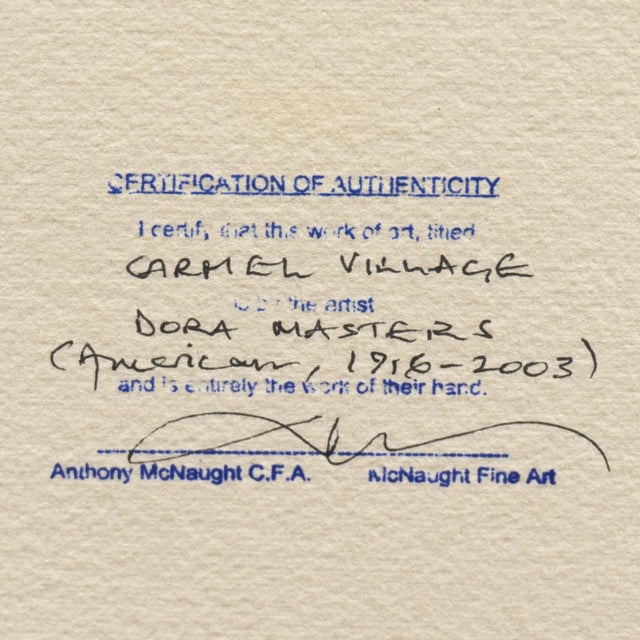 CERTIFICATION OF AUTHENTICITY
I certify that this work of art, titled
CARMEL VILLAGE
is by the artist
DORA MASTERS
(American, 1916-2003)
and is entirely the work of their hand.
Anthony McNaught C.F.A. McNaught Fine Art